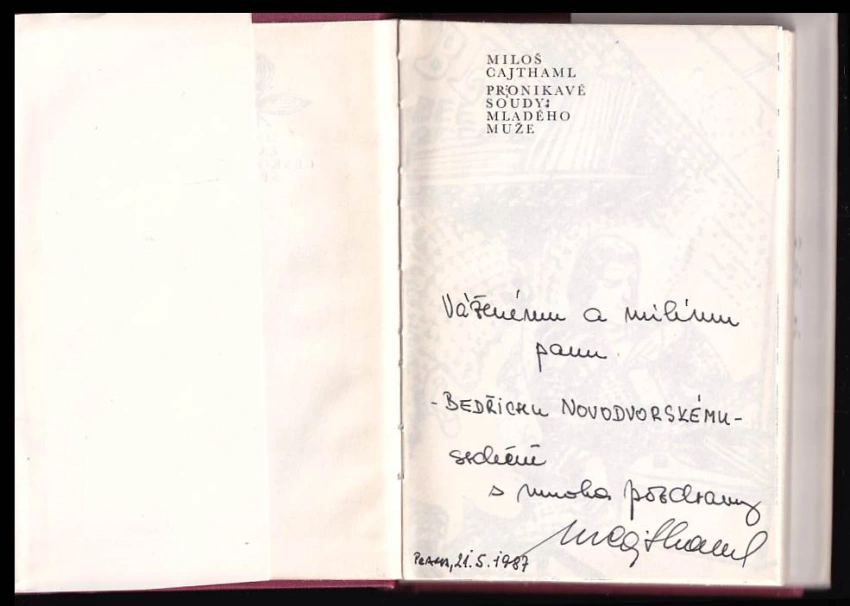 MILOŠ
CAJTHAML
PRONIKAVÉ
SOUDY
MLADÉHO
MUŽE
Váženému a milému
panu
- BEDŘICHU NOVODVORSKÉMU -
srdečně
s mnoha pozdravy
MCajthaml
Praha, 21.5.1987